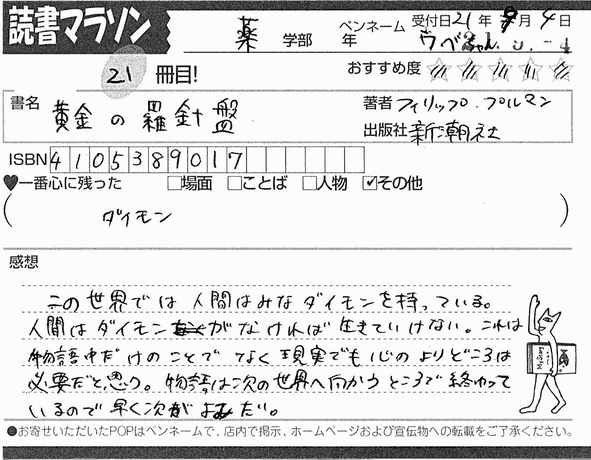 読書マラソン
薬 学部 年
ペンネーム
受付日21年9月4日
うべちゃん
21 冊目!
おすすめ度
書名 黄金の羅針盤
著者 フィリップ・プルマン
出版社 新潮社
ISBN 4105389017
♥一番心に残った □場面 □ことば □人物 ☑その他
( ダイモン )
感想
この世界では人間はみなダイモンを持っている。
人間はダイモンがなければ生きていけない。これは
物語中だけのことでなく現実でも心のよりどころは
必要だと思う。物語は次の世界へ向かうところで終わって
いるので早く次がよみだ。
●お寄せいただいたPOPはペンネームで、店内で掲示、ホームページおよび宣伝物への転載をご了承ください。